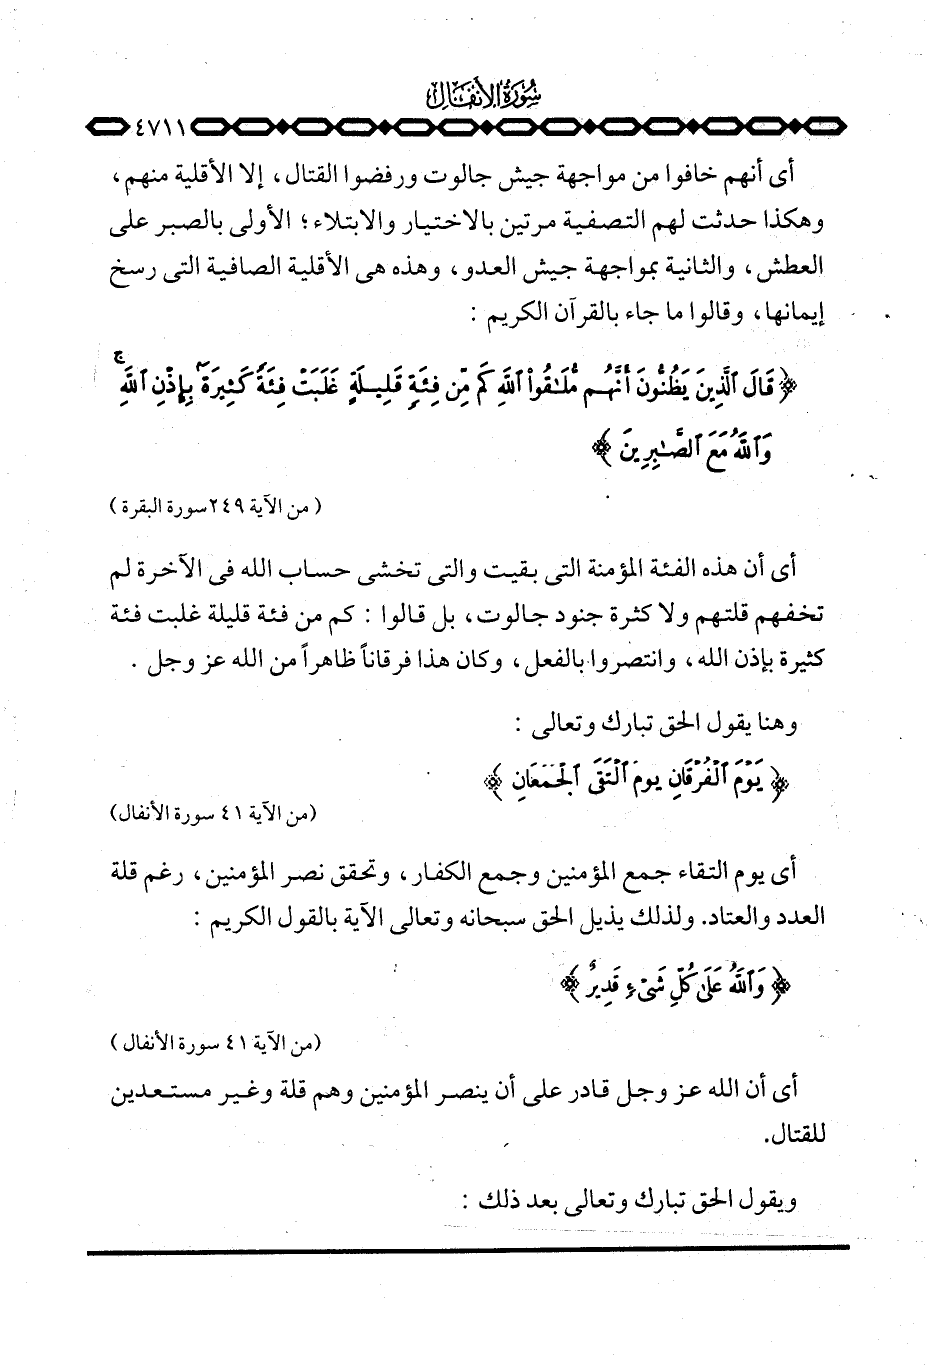 سُورَةُ الأَنفَالِ
٤٧١١
أى أنهم خافوا من مواجهة جيش جالوت ورفضوا القتال، إلا الأقلية منهم،
وهكذا حدثت لهم التصفية مرتين بالاختيار والابتلاء؛ الأولى بالصبر على
العطش، والثانية بمواجهة جيش العدو، وهذه هى الأقلية الصافية التى رسخ
إيمانها، وقالوا ما جاء بالقرآن الكريم :
﴿ قَالَ ٱلَّذِينَ يَظُنُّونَ أَنَّهُم مُّلَٰقُواْ ٱللَّهِ كَم مِّن فِئَةٍ قَلِيلَةٍ غَلَبَتْ فِئَةً كَثِيرَةً بِإِذْنِ ٱللَّهِ ۗ
وَٱللَّهُ مَعَ ٱلصَّٰبِرِينَ ﴾
( من الآية ٢٤٩ سورة البقرة )
أى أن هذه الفئة المؤمنة التى بقيت والتى تخشى حساب الله فى الآخرة لم
تخفهم قلتهم ولا كثرة جنود جالوت، بل قالوا : كم من فئة قليلة غلبت فئة
كثيرة بإذن الله، وانتصروا بالفعل، وكان هذا فرقاناً ظاهراً من الله عز وجل .
وهنا يقول الحق تبارك وتعالى :
﴿ يَوْمَ ٱلْفُرْقَانِ يَوْمَ ٱلْتَقَى ٱلْجَمْعَانِ ﴾
(من الآية ٤١ سورة الأنفال)
أى يوم التقاء جمع المؤمنين وجمع الكفار، وتحقق نصر المؤمنين، رغم قلة
العدد والعتاد. ولذلك يذيل الحق سبحانه وتعالى الآية بالقول الكريم :
﴿ وَٱللَّهُ عَلَىٰ كُلِّ شَىْءٍ قَدِيرٌ ﴾
(من الآية ٤١ سورة الأنفال )
أى أن الله عز وجل قادر على أن ينصر المؤمنين وهم قلة وغير مستعدين
للقتال.
ويقول الحق تبارك وتعالى بعد ذلك :